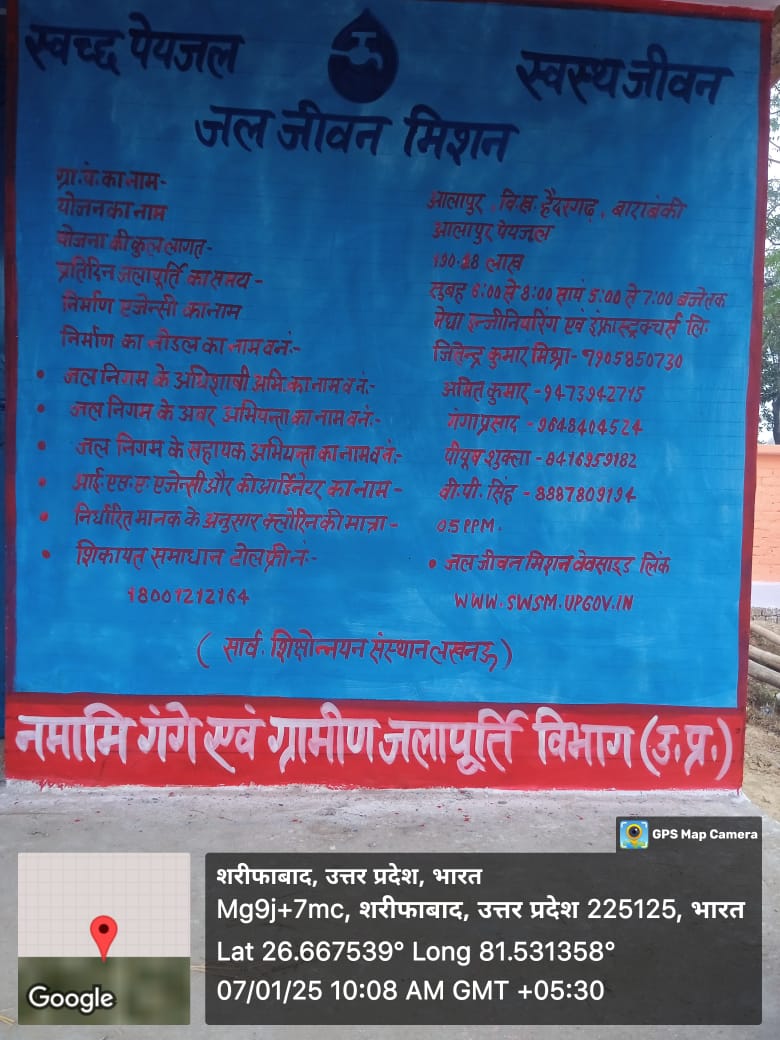 स्वच्छ पेयजल
स्वस्थ जीवन
जल जीवन मिशन
ग्रा.पं. का नाम-
आलापुर, वि.ख. हैदरगढ़, बाराबंकी
योजन का नाम
आलापुर पेयजल
योजना की कुल लागत-
लाख
प्रतिदिन जलापूर्ति का समय-
सुबह 6:00 से 8:00 सायं 5:00 से 7:00 बजे तक
निर्माण एजेन्सी का नाम
मेघा इन्जीनियरिंग एवं इंफ्रास्ट्रक्चर्स लि.
निर्माण का नोडल का नाम व नं:-
जितेन्द्र कुमार मिश्रा- 7905850730
• जल निगम के अधिशाषी अभि. का नाम व नं:-
अमित कुमार - 9473942715
• जल निगम के अवर अभियन्ता का नाम व नं:-
गंगा प्रसाद - 9648404524
• जल निगम के सहायक अभियन्ता का नाम व नं:-
पीयूष शुक्ला - 8416959182
• आई.एस.ए. एजेन्सी और कोआर्डिनेटर का नाम -
वी.पी. सिंह - 8887809194
• निर्धारित मानक के अनुसार क्लोरिन की मात्रा -
0.5 PPM.
• शिकायत समाधान टोल फ्री नं:-
18001212164
• जल जीवन मिशन वेवसाइड लिंक
WWW.SWSM.UPGOV.IN
( सार्व. शिक्षोन्नयन संस्थान लखनऊ )
नमामि गंगे एवं ग्रामीण जलापूर्ति विभाग (उ.प्र.)
GPS Map Camera
शरीफाबाद, उत्तर प्रदेश, भारत
Mg9j+7mc, शरीफाबाद, उत्तर प्रदेश 225125, भारत
Lat 26.667539° Long 81.531358°
07/01/25 10:08 AM GMT +05:30
Google